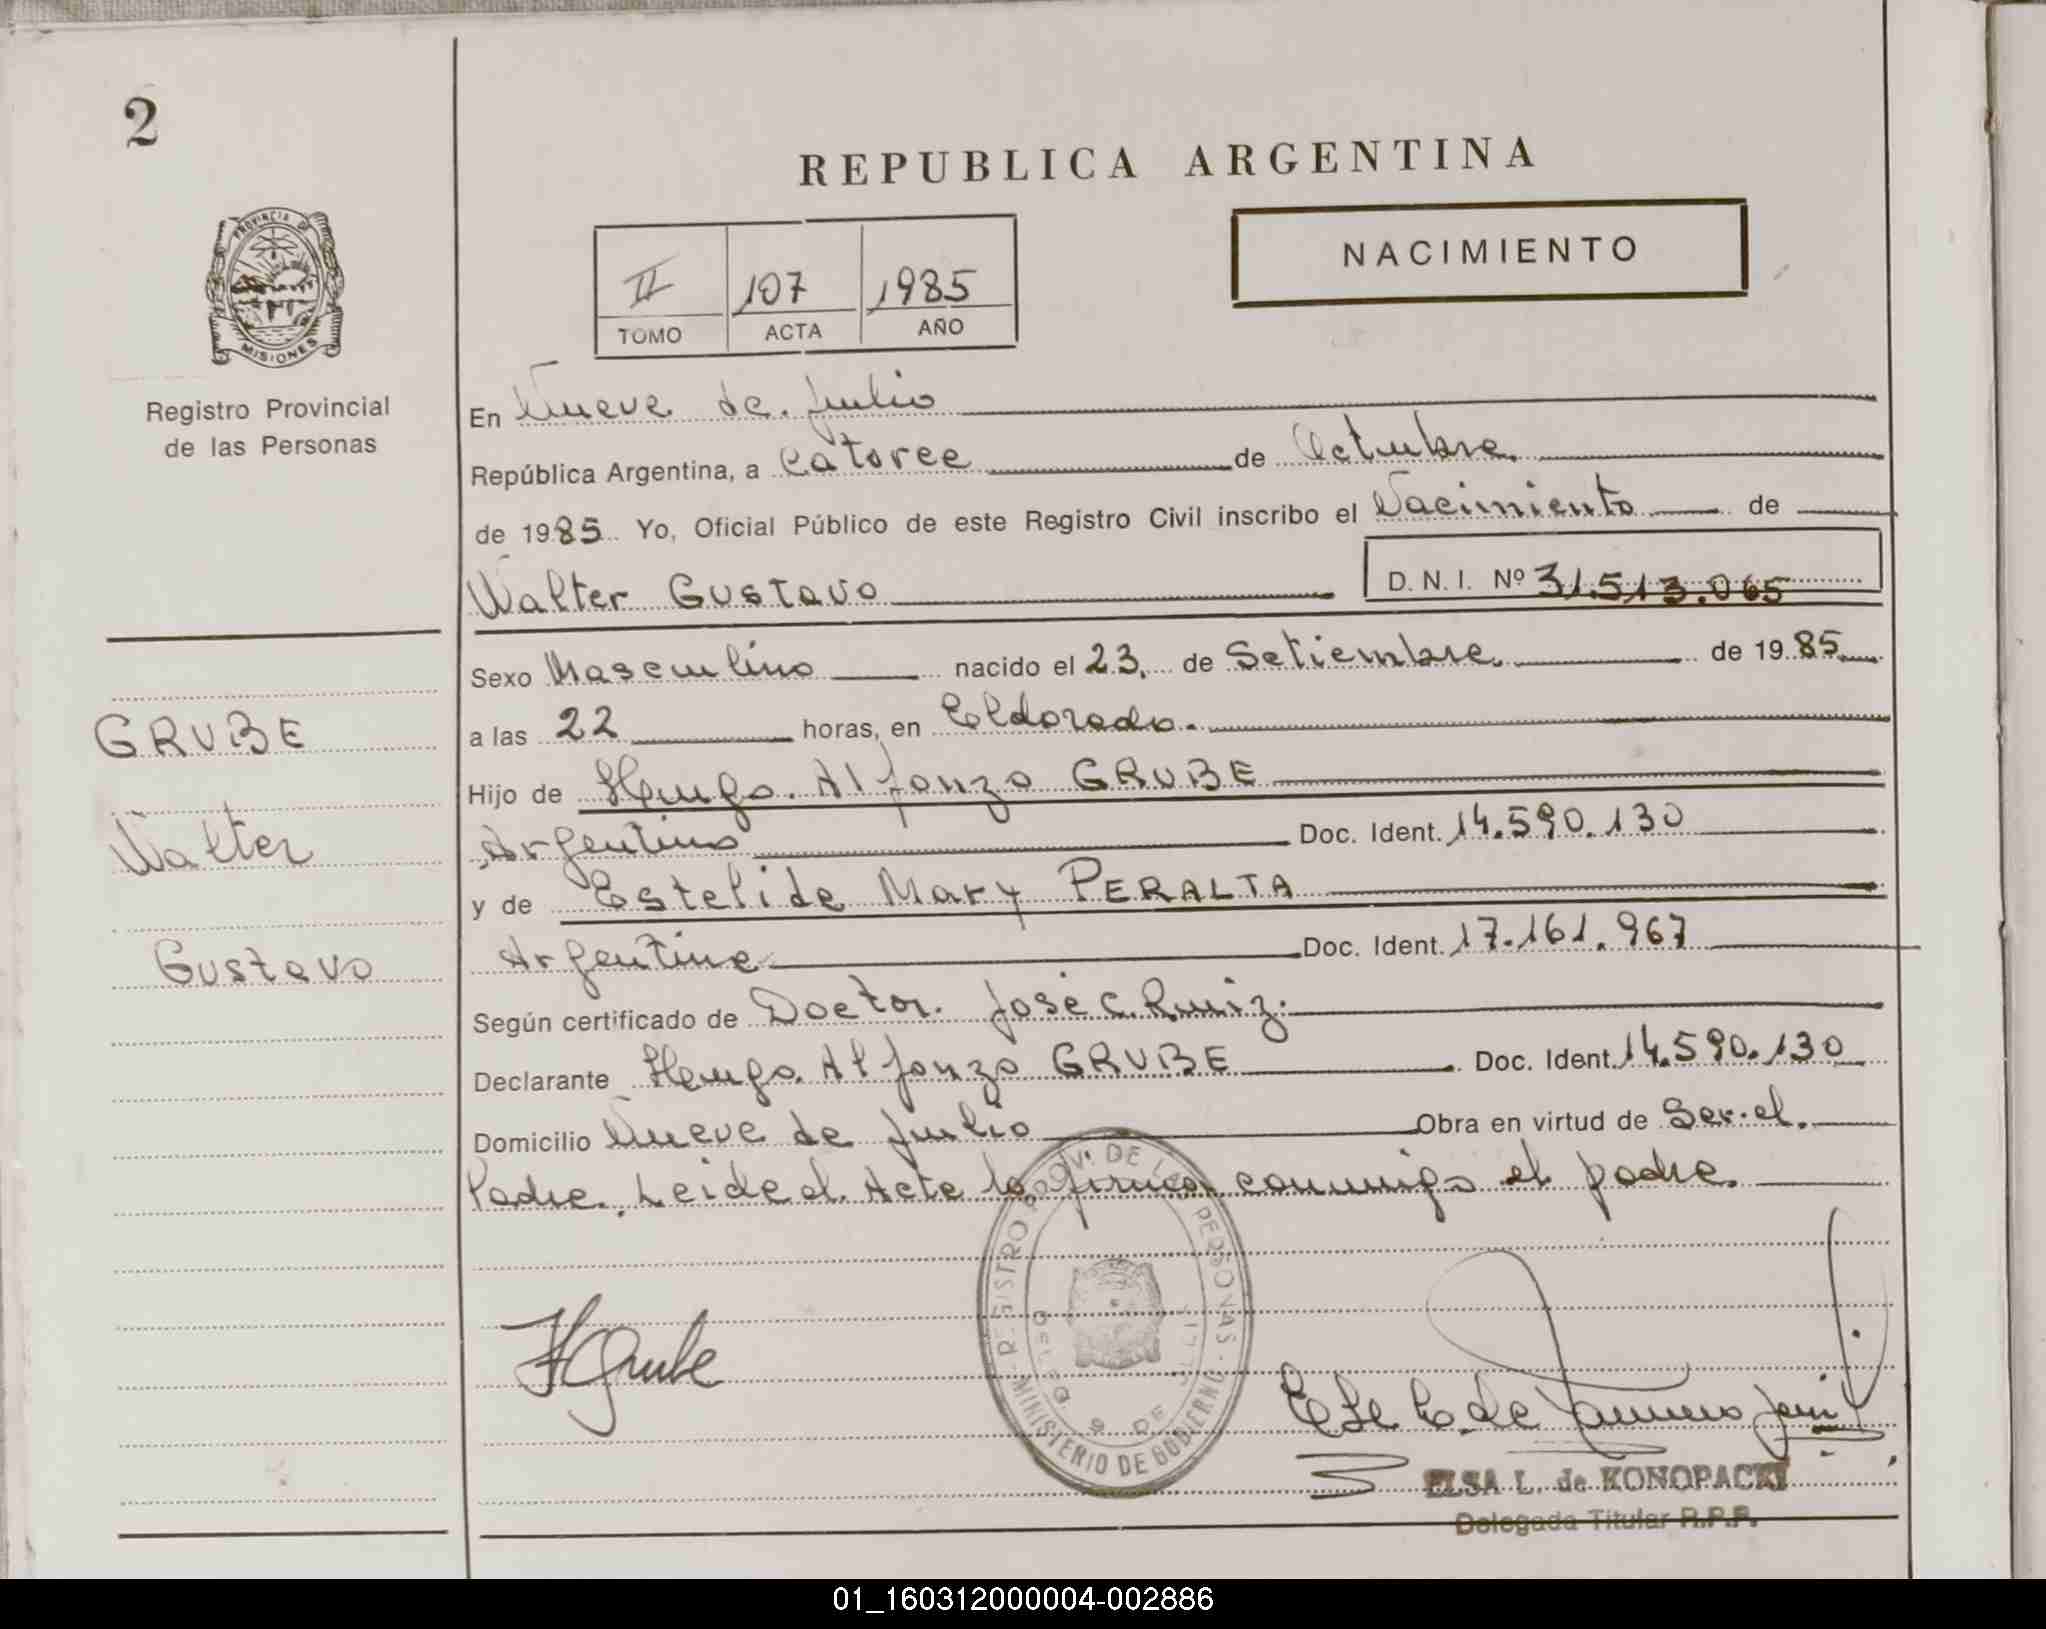 2
REPUBLICA ARGENTINA
NACIMIENTO
PROVINCIA DE
MISIONES
Registro Provincial
de las Personas
II 107 1985
TOMO ACTA AÑO
En Nueve de Julio
República Argentina, a Catorce de Octubre.
de 1985. Yo, Oficial Público de este Registro Civil inscribo el Nacimiento de
Walter Gustavo D.N.I. Nº 31.513.065
Sexo Masculino nacido el 23, de Setiembre. de 1985
a las 22 horas, en Eldorado.
GRUBE
Hijo de Hugo. Alfonzo GRUBE
Walter
Argentino Doc. Ident. 14.590.130
y de Estelide Mary PERALTA
Gustavo
Argentina Doc. Ident. 17.161.967
Según certificado de Doctor. José C. Ruiz.
Declarante Hugo. Alfonzo GRUBE Doc. Ident. 14.590.130
Domicilio Nueve de Julio Obra en virtud de Ser. el.
Padre. Leida el Acta la firma conmigo el padre.
REGISTRO PROV. DE LAS PERSONAS
MINISTERIO DE GOBIERNO
DELEG. 9 DE JULIO
HGrube
ELSA L. de KONOPACKI
Delegada Titular R.P.P.
01_160312000004-002886